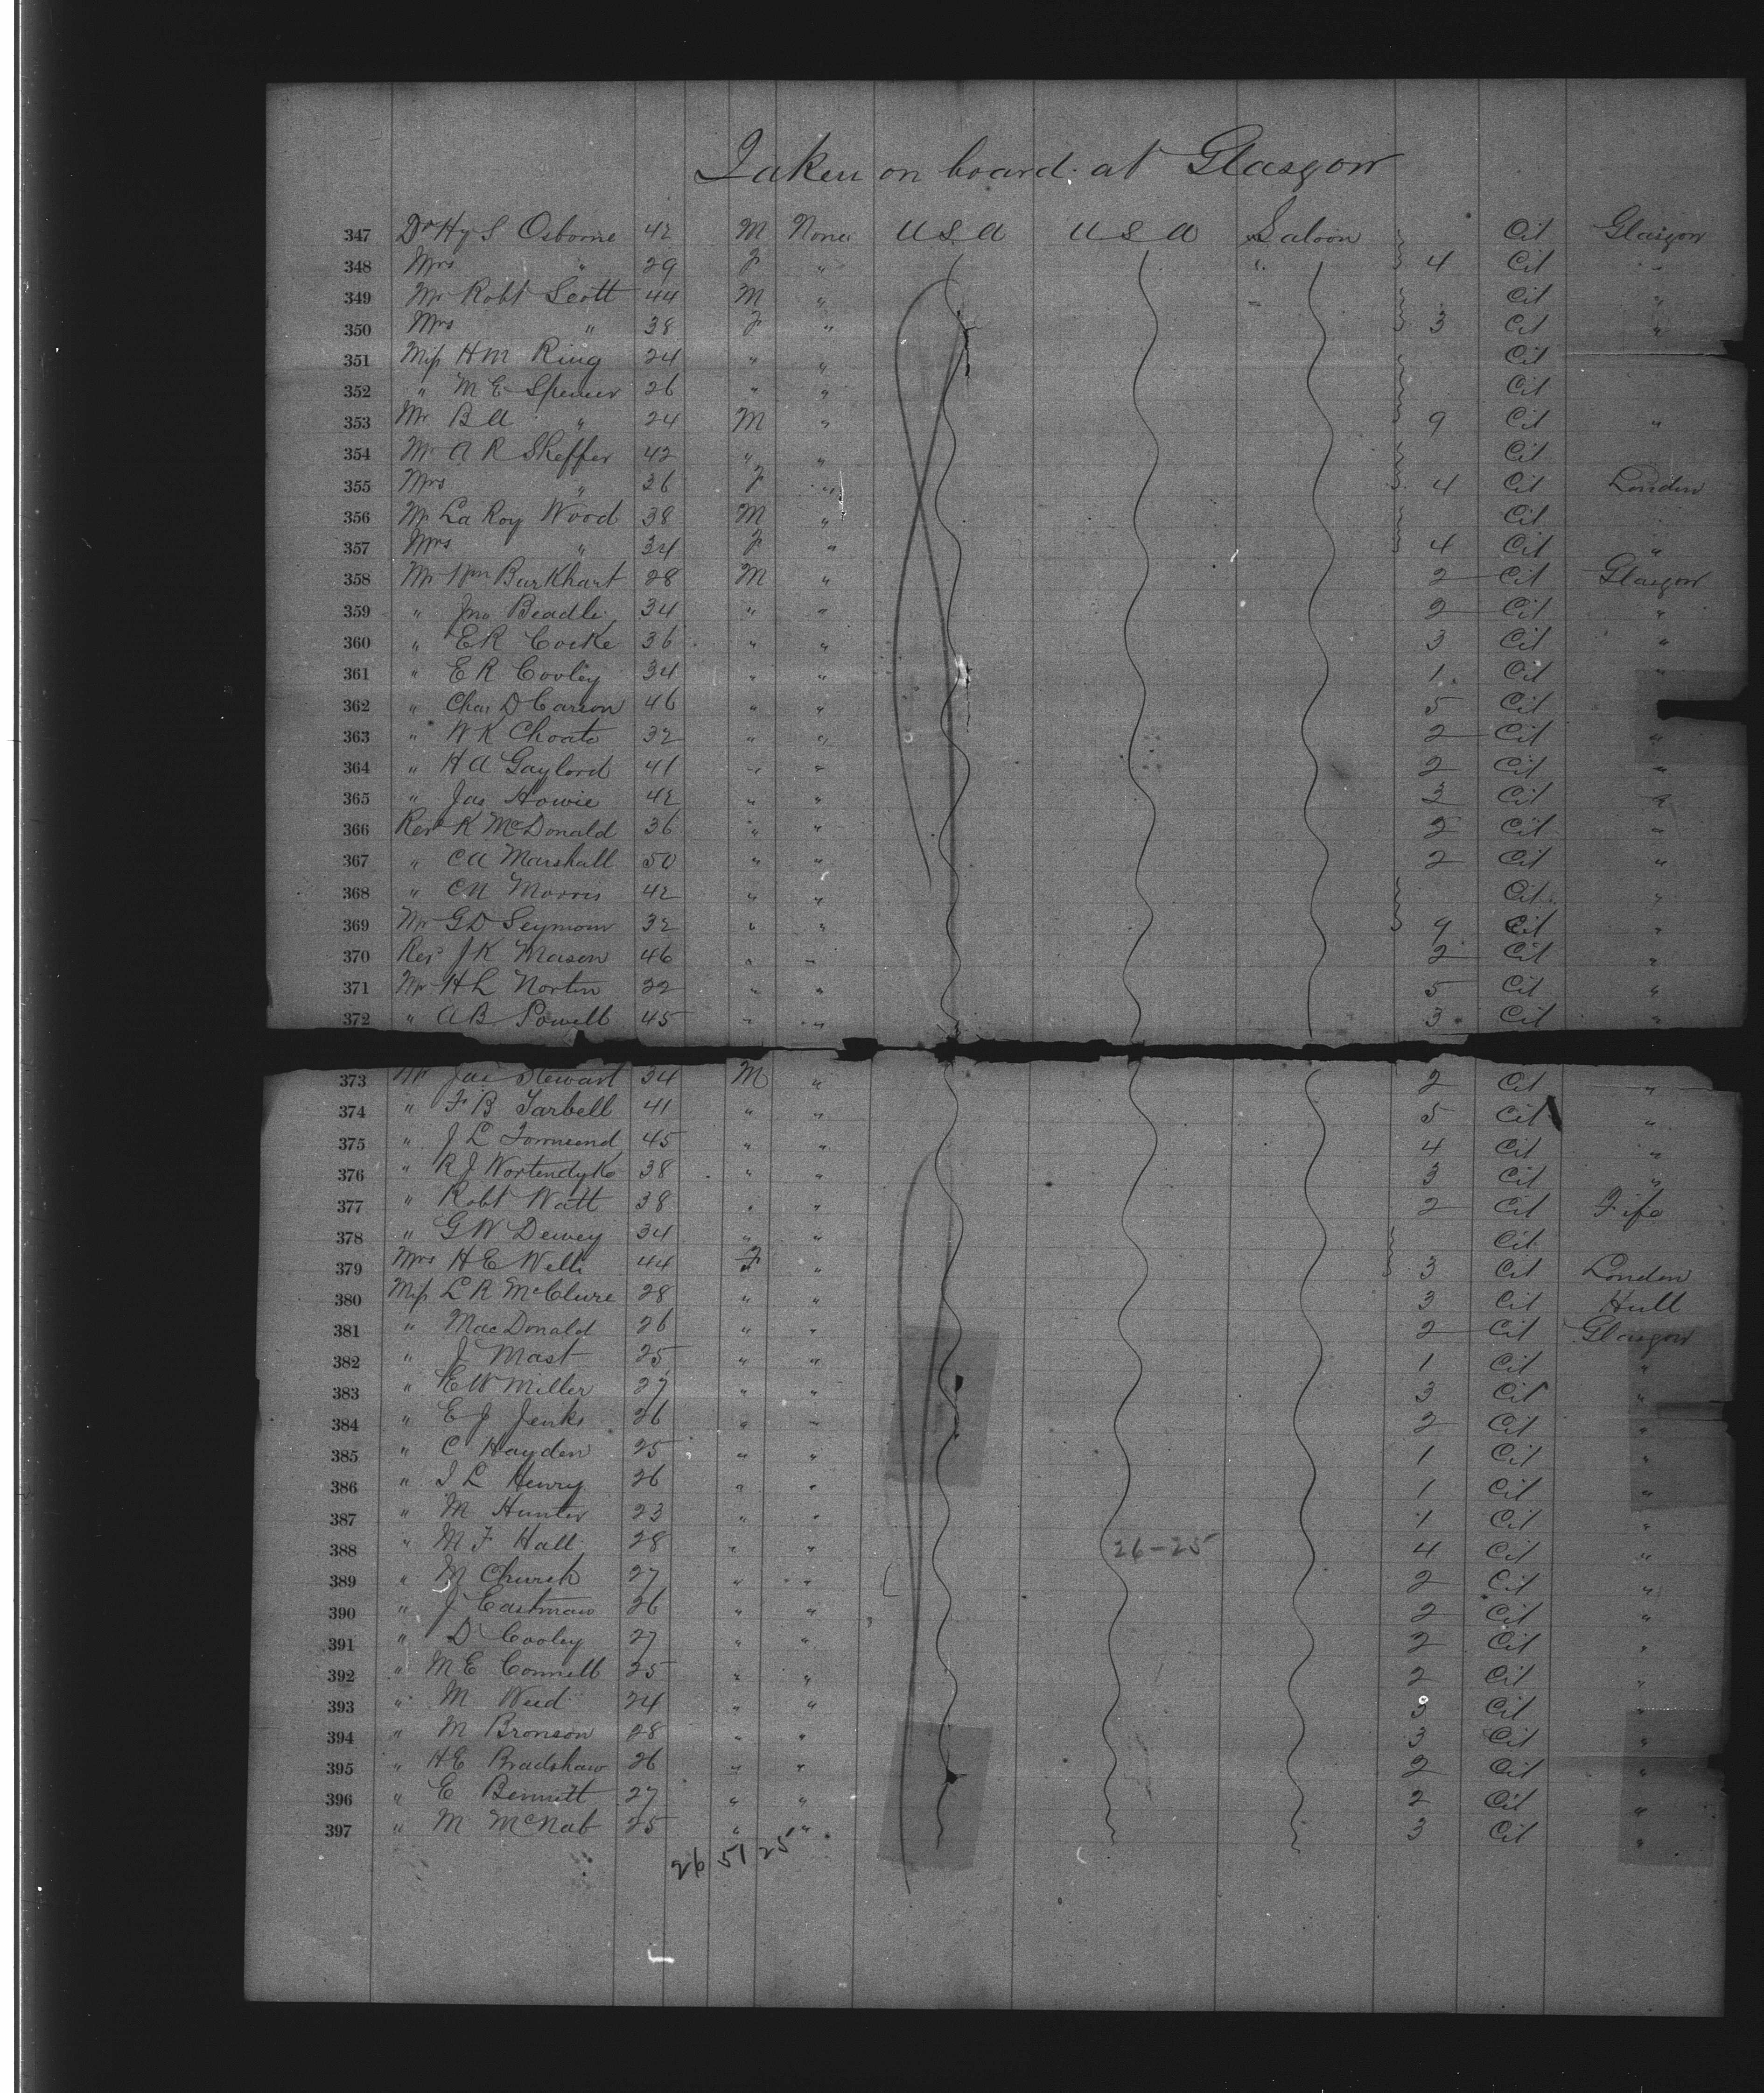 Taken on board at Glasgow
347 Dr Hy S Osborne 42 M None U S A U S A Saloon Cit Glasgow
348 Mrs " 29 F " " 4 Cit "
349 Mr Robt Scott 44 M " " Cit "
350 Mrs " 38 F " 3 Cit "
351 Miss H M Ring 24 " " Cit
352 " M E Spencer 26 " " Cit
353 Mr B A " 24 M " 9 Cit "
354 Mr A R Sheffer 42 " " Cit
355 Mrs " 36 F " 4 Cit London
356 Mr La Roy Wood 38 M " Cit
357 Mrs " 34 F " 4 Cit "
358 Mr Wm Burkhart 28 M " 2 Cit Glasgow
359 " Jno Beadle 34 " " 2 Cit "
360 " E R Cocke 36 " " 3 Cit "
361 " E R Cooley 34 " " 1 Cit "
362 " Chas D Carson 46 " " 5 Cit
363 " W K Choate 32 " " 2 Cit "
364 " H A Gaylord 41 " " 2 Cit "
365 " Jas Howie 42 " " 3 Cit "
366 Revd K McDonald 36 " " 2 Cit "
367 " C A Marshall 50 " " 2 Cit "
368 " C N Morris 42 " " Cit "
369 Mr G D Seymour 32 " " 9 Cit "
370 Revd J K Mason 46 " " 2 Cit "
371 Mr H L Norton 22 " " 5 Cit "
372 " A B Powell 45 " " 3 Cit "
373 Mr Jas Stewart 34 M " 2 Cit "
374 " F B Tarbell 41 " " 5 Cit "
375 " J L Townsend 45 " " 4 Cit "
376 " R J Wortendyke 38 " " 3 Cit "
377 " Robt Watt 38 " " 2 Cit Fife
378 " G W Dewey 34 " " Cit
379 Mrs H E Wells 44 F " 3 Cit London
380 Miss L R McClure 28 " " 3 Cit Hull
381 " MacDonald 26 " " 2 Cit Glasgow
382 " J Mast 25 " " 1 Cit "
383 " E W Miller 27 " " 3 Cit "
384 " E J Jenks 26 " " 2 Cit "
385 " C Hayden 25 " " 1 Cit "
386 " I L Henry 26 " " 1 Cit "
387 " M Hunter 23 " " 1 Cit "
388 " M F Hall 28 " " 26-25 4 Cit "
389 " M Church 27 " " 2 Cit "
390 " J Eastman 26 " " 2 Cit "
391 " D Cooley 27 " " 2 Cit "
392 " M E Connell 25 " " 2 Cit "
393 " M Weed 24 " " 3 Cit "
394 " M Bronson 28 " " 3 Cit "
395 " H E Bradshaw 26 " " 2 Cit "
396 " E Bennett 27 " " 2 Cit "
397 " M McNab 25 " " 3 Cit "
26 51 25